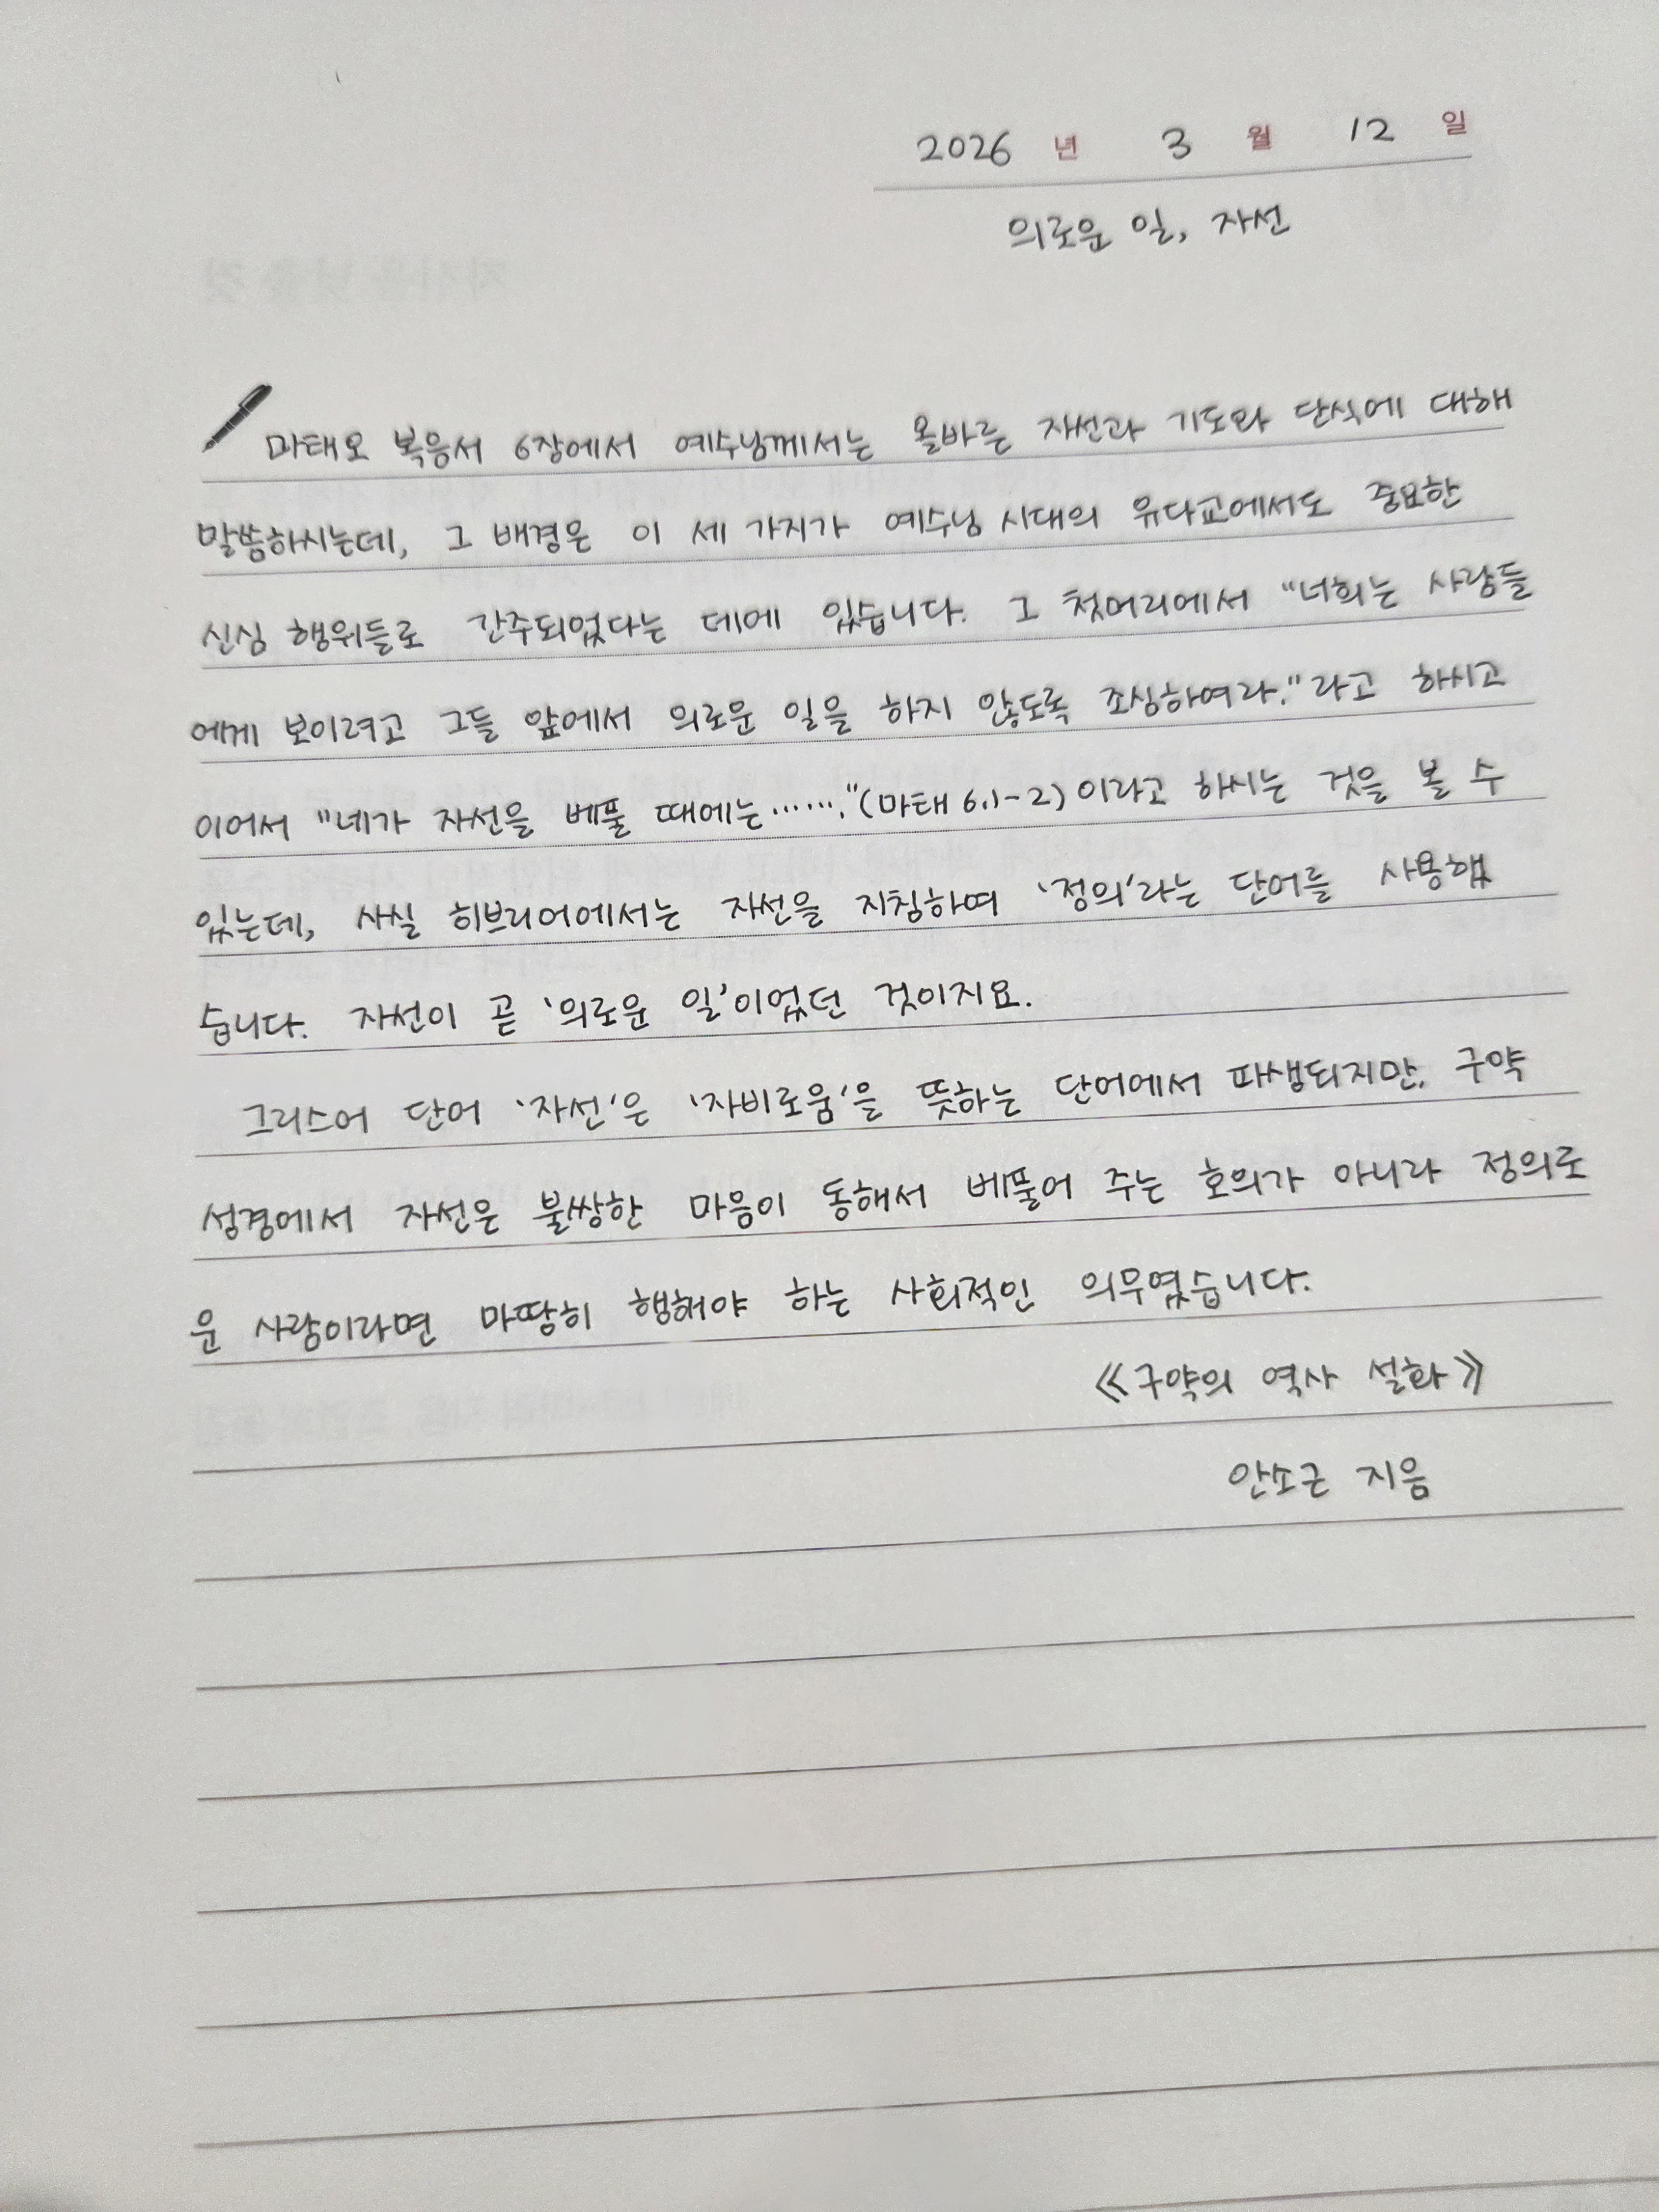 2026 년 3 월 12 일
의로운 일, 자선
마태오 복음서 6장에서 예수님께서는 올바른 자선과 기도와 단식에 대해
말씀하시는데, 그 배경은 이 세 가지가 예수님 시대의 유다교에서도 중요한
신심 행위들로 간주되었다는 데에 있습니다. 그 첫머리에서 "너희는 사람들
에게 보이려고 그들 앞에서 의로운 일을 하지 않도록 조심하여라."라고 하시고
이어서 "네가 자선을 베풀 때에는……."(마태 6.1-2)이라고 하시는 것을 볼 수
있는데, 사실 히브리어에서는 자선을 지칭하여 '정의'라는 단어를 사용했
습니다. 자선이 곧 '의로운 일'이었던 것이지요.
그리스어 단어 '자선'은 '자비로움'을 뜻하는 단어에서 파생되지만, 구약
성경에서 자선은 불쌍한 마음이 동해서 베풀어 주는 호의가 아니라 정의로
운 사람이라면 마땅히 행해야 하는 사회적인 의무였습니다.
《구약의 역사 설화》
안소근 지음